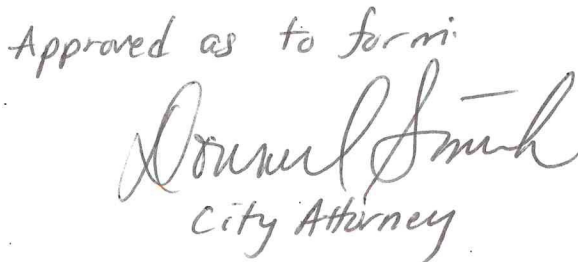 Approved as to form:
Smith
City Attorney